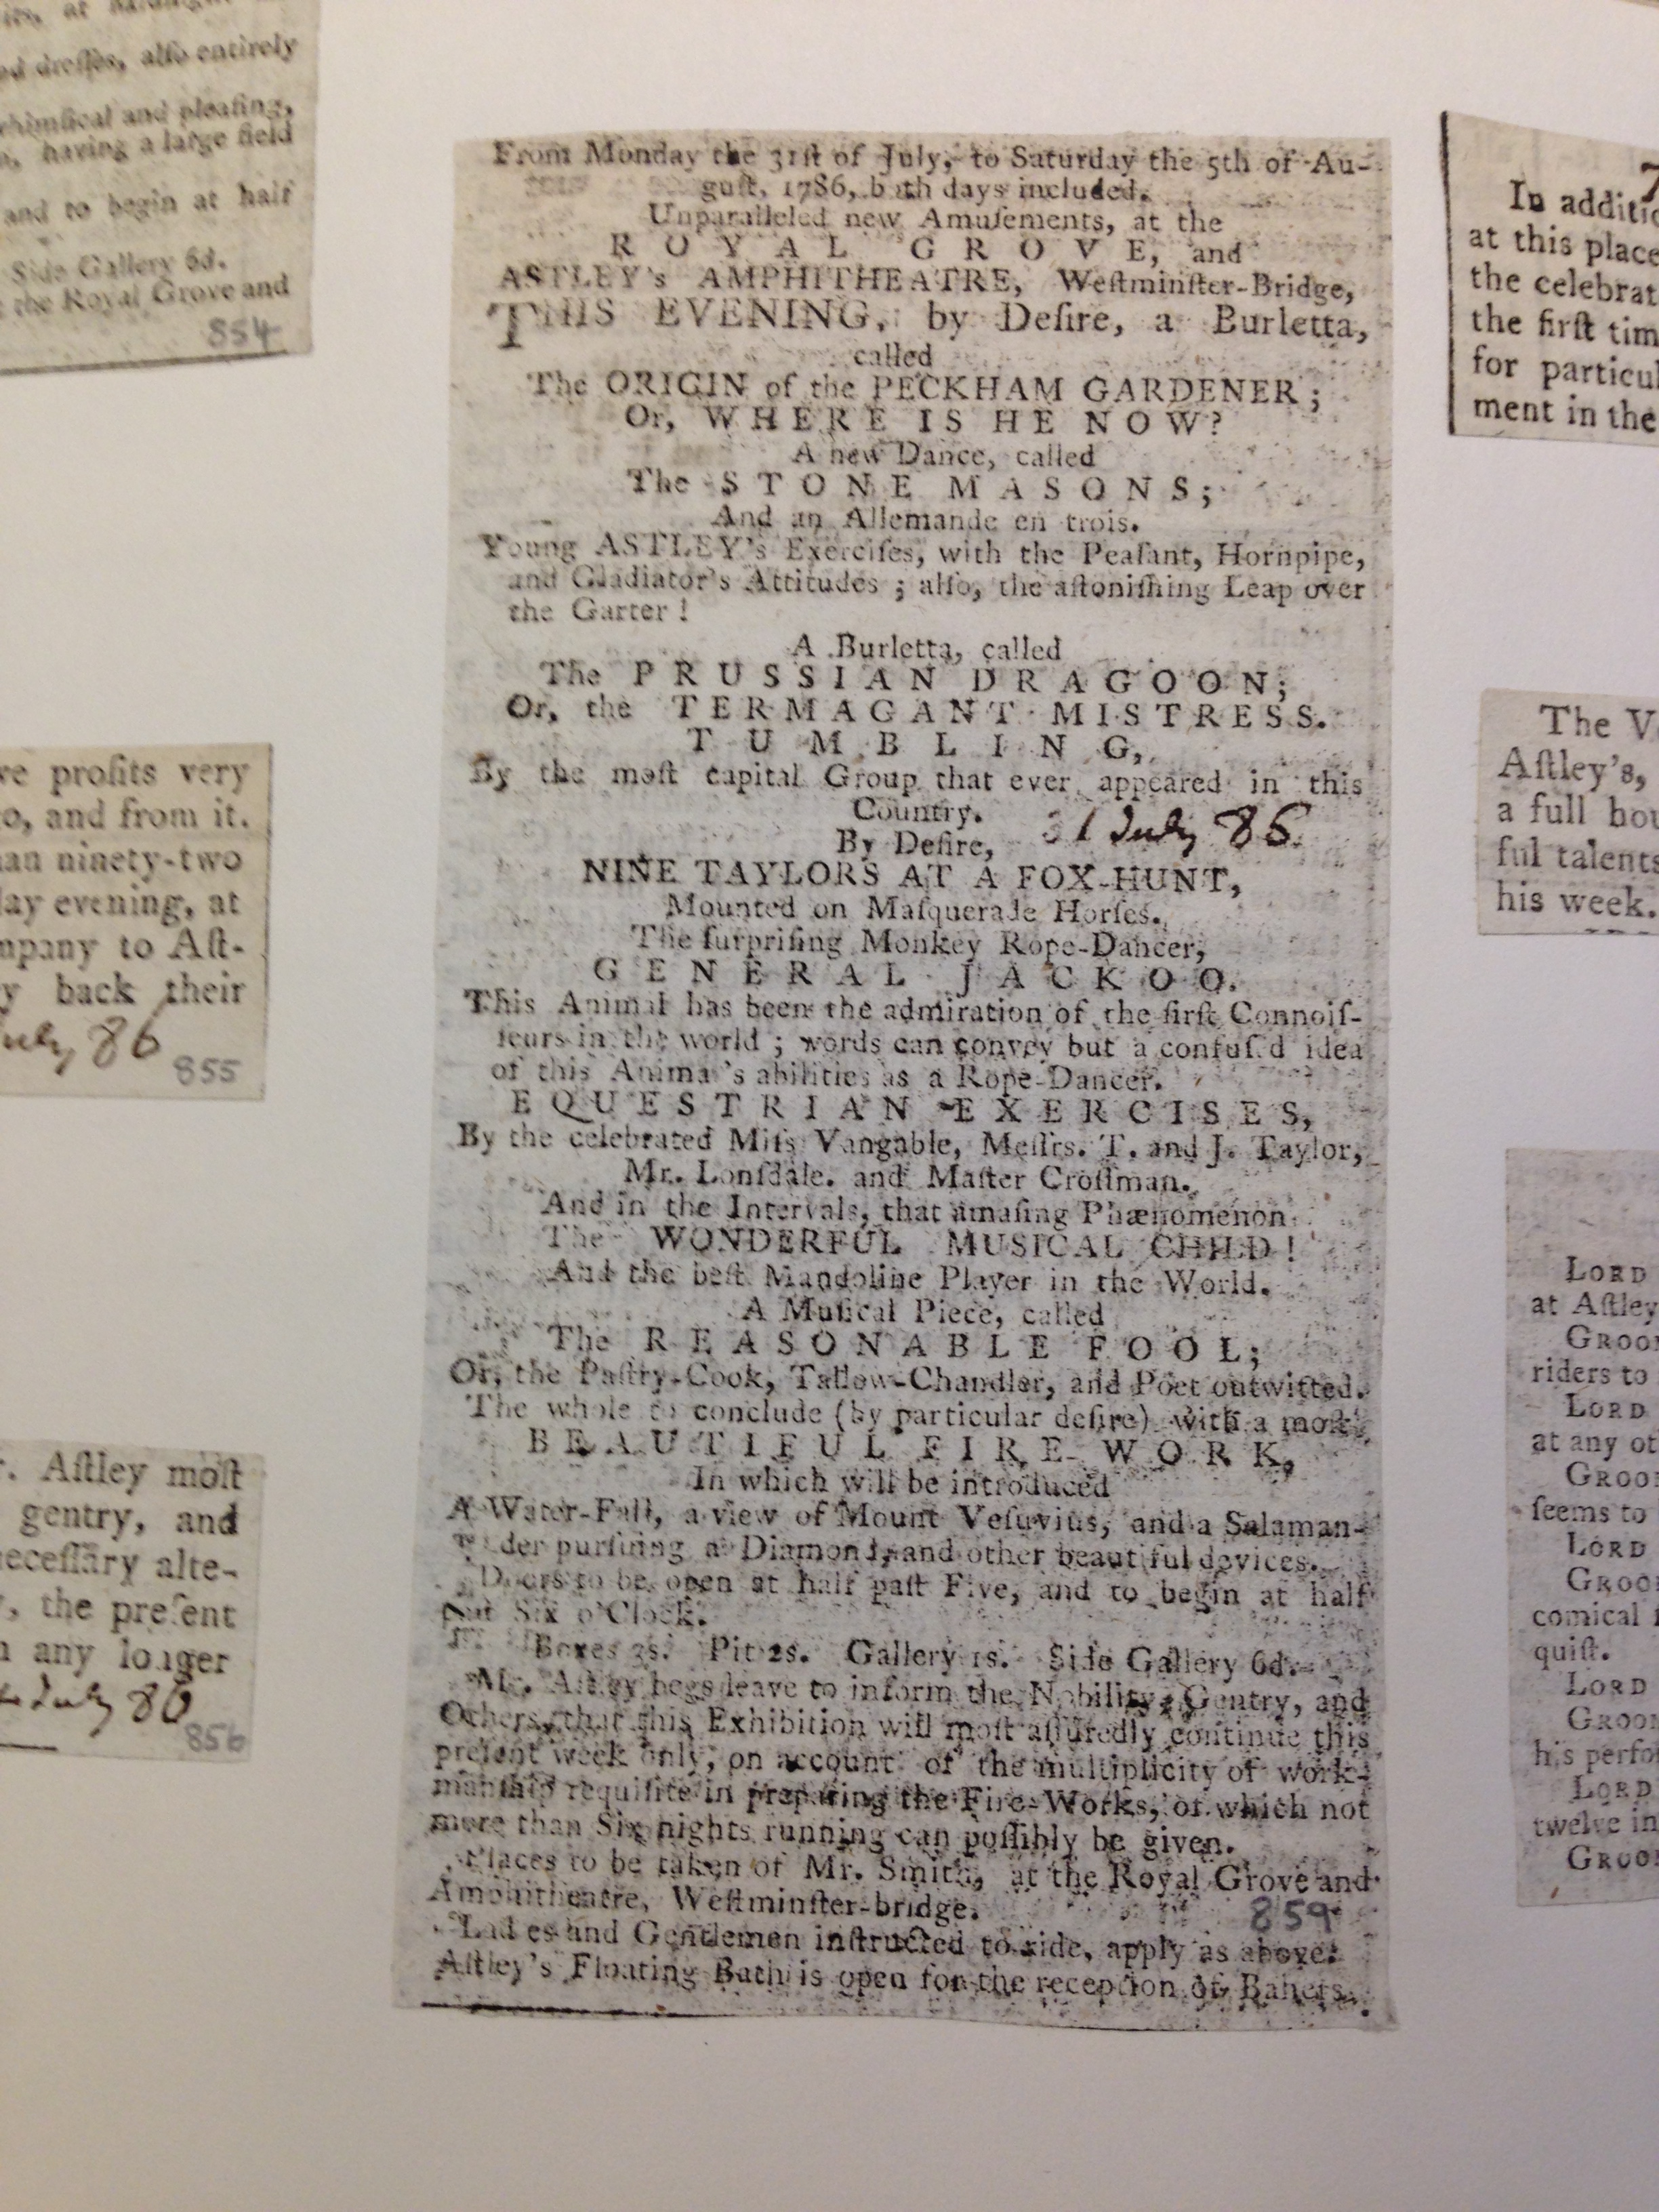 its, at
ed dreſſes, alſo entirely
whimſical and pleaſing,
n, having a large field
and to begin at half
Side Gallery 6d.
the Royal Grove and
854
ve profits very
o, and from it.
an ninety-two
lay evening, at
mpany to Aſt-
y back their
July 86
855
r. Aſtley moſt
gentry, and
neceſſary alte-
, the preſent
n any longer
July 86
856
From Monday the 31ſt of July, to Saturday the 5th of Au-
guſt, 1786, both days included.
Unparalleled new Amuſements, at the
ROYAL GROVE, and
ASTLEY's AMPHITHEATRE, Weſtminſter-Bridge,
THIS EVENING, by Deſire, a Burletta,
called
The ORIGIN of the PECKHAM GARDENER;
Or, WHERE IS HE NOW?
A new Dance, called
The STONE MASONS;
And an Allemande en trois.
Young ASTLEY's Exerciſes, with the Peaſant, Hornpipe,
and Gladiator's Attitudes; alſo, the aſtoniſhing Leap over
the Garter!
A Burletta, called
The PRUSSIAN DRAGOON;
Or, the TERMAGANT MISTRESS.
TUMBLING,
By the moſt capital Group that ever appeared in this
Country.
By Deſire,
31 July 86
NINE TAYLORS AT A FOX-HUNT,
Mounted on Maſquerade Horſes.
The ſurpriſing Monkey Rope-Dancer,
GENERAL JACKOO.
This Animal has been the admiration of the firſt Connoiſ-
ſeurs in the world; words can convey but a confuſed idea
of this Animal's abilities as a Rope-Dancer.
EQUESTRIAN EXERCISES,
By the celebrated Miſs Vangable, Meſſrs. T. and J. Taylor,
Mr. Lonſdale. and Maſter Croſſman.
And in the Intervals, that amaſing Phænomenon
The WONDERFUL MUSICAL CHILD!
And the beſt Mandoline Player in the World.
A Muſical Piece, called
The REASONABLE FOOL;
Or, the Paſtry-Cook, Tallow-Chandler, and Poet outwitted.
The whole to conclude (by particular deſire) with a moſt
BEAUTIFUL FIRE-WORK,
In which will be introduced
A Water-Fall, a view of Mount Veſuvius, and a Salaman-
der purſuing a Diamond, and other beautiful devices.
Doors to be open at half paſt Five, and to begin at half
paſt Six o'Clock.
Boxes 3s. Pit 2s. Gallery 1s. Side Gallery 6d.
Mr. Aſtley begs leave to inform the Nobility, Gentry, and
Others, that this Exhibition will moſt aſſuredly continue this
preſent week only, on account of the multiplicity of work-
manſhip requiſite in preparing the Fire-Works, of which not
more than Six nights running can poſſibly be given.
Places to be taken of Mr. Smith, at the Royal Grove and
Amphitheatre, Weſtminſter-bridge.
859
Ladies and Gentlemen inſtructed to ride, apply as above.
Aſtley's Floating Bath is open for the reception of Bahers.
In additio
at this place
the celebrat
the firſt tim
for particul
ment in the
The V
Aſtley's,
a full hou
ful talents
his week.
LORD
at Aſtley
GROOM
riders to
LORD
at any ot
GROOM
ſeems to
LORD
GROOM
comical
quiſt.
LORD
GROOM
his perfo
LORD
twelve in
GROO